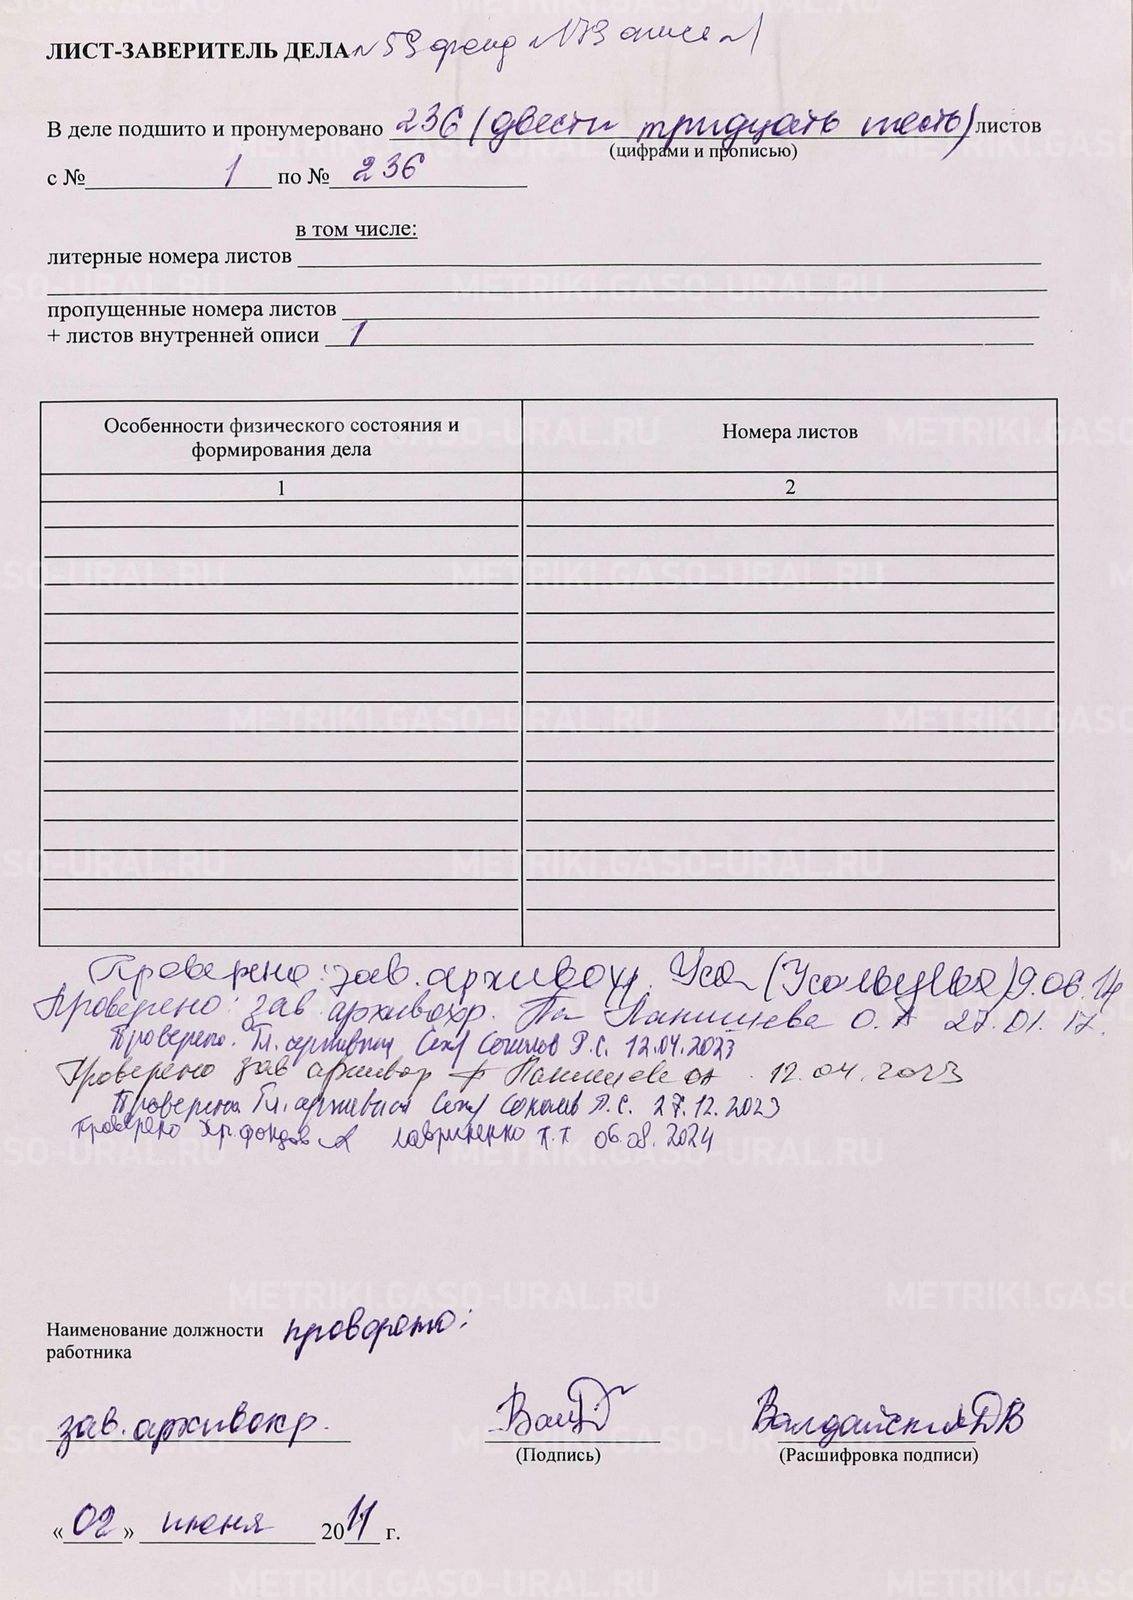 ЛИСТ-ЗАВЕРИТЕЛЬ ДЕЛА №59 фонд №173 опись №1
В деле подшито и пронумеровано 236 (двести тридцать шесть) листов
(цифрами и прописью)
с № 1 по № 236
в том числе:
литерные номера листов
пропущенные номера листов
+ листов внутренней описи 1
Особенности физического состояния и формирования дела
Номера листов
1 2
Проверено: зав. архивохр. (Усольцева) 9.06.14
Проверено: зав. архивохр. Паницева О.А 27.01.17.
Проверено. Гл. архивист Соколов Р.С. 12.04.2023
Проверено зав архивохр 12.04.2023
Проверено Гл. архивист Соколов Р.С. 27.12.2023
Проверено хр. фондов Лавриненко 06.08.2024
Наименование должности работника проверено:
зав. архивохр. Валдайский ДВ
(Подпись) (Расшифровка подписи)
«02» июня 2011 г.
METRIKI.GASO-URAL.RU